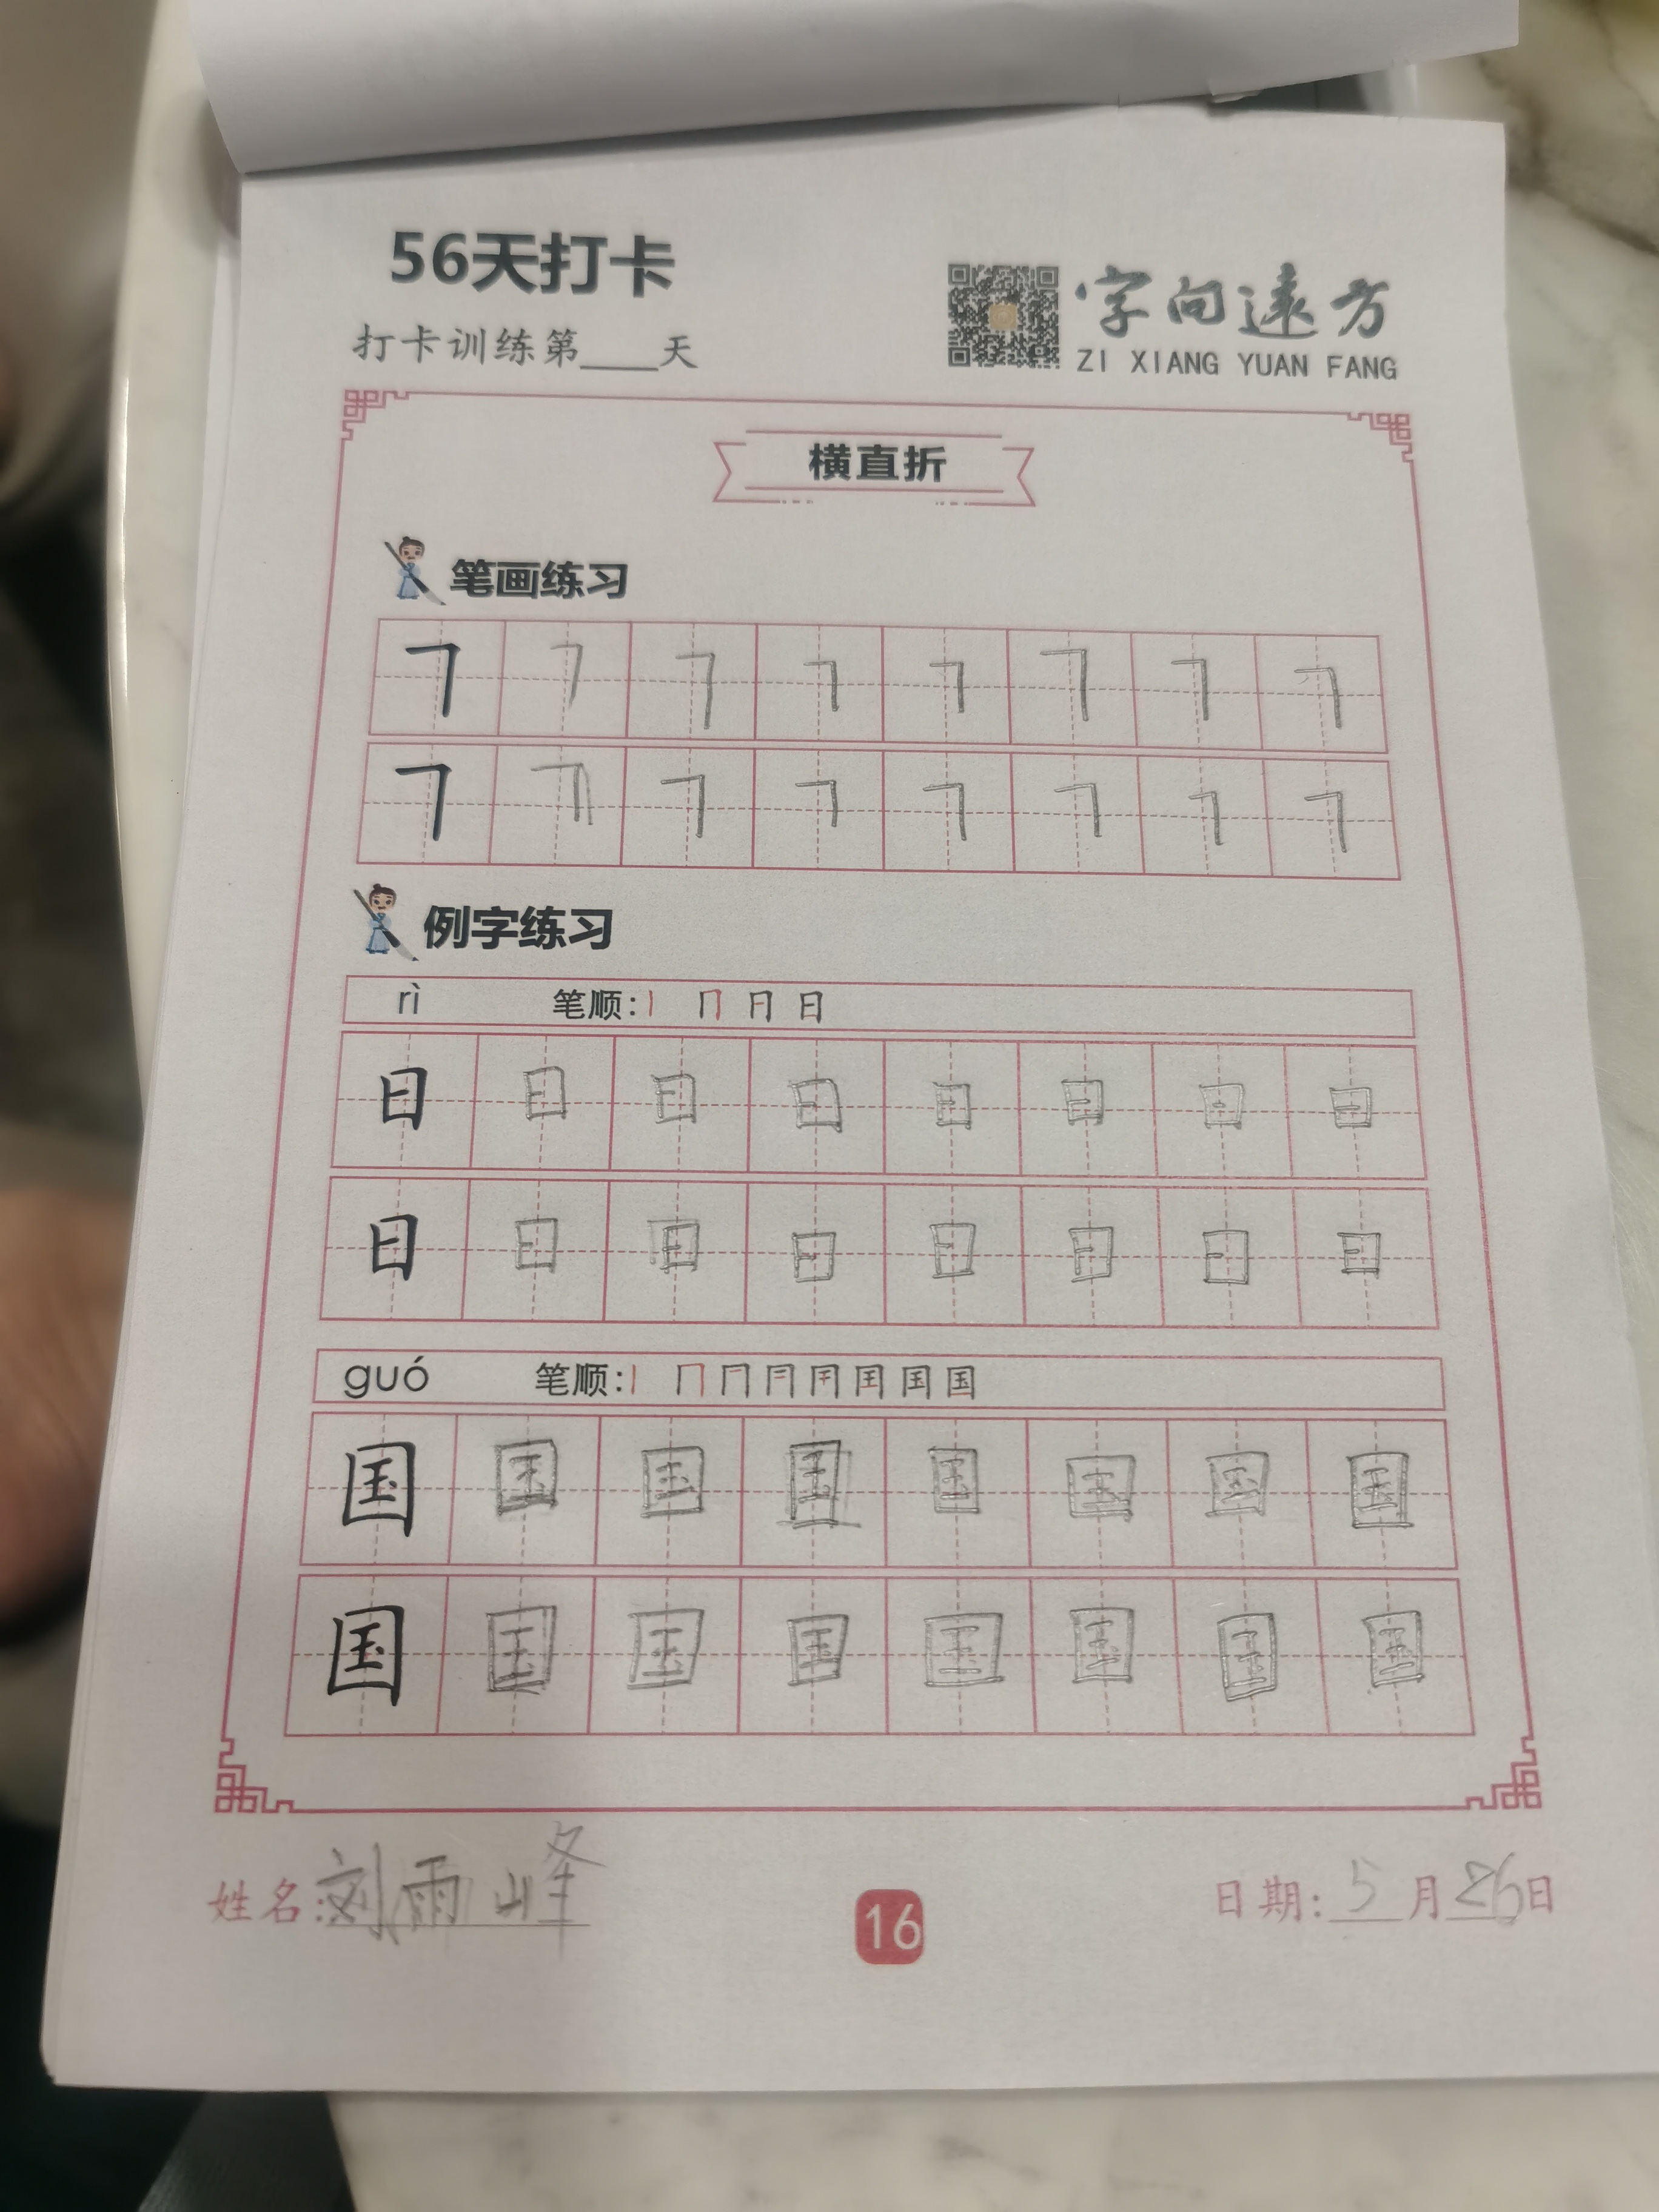 56天打卡
打卡训练第___天
字向远方
ZI XIANG YUAN FANG
横直折
笔画练习
㇕ ㇕ ㇕ ㇕ ㇕ ㇕ ㇕ ㇕
㇕ ㇕ ㇕ ㇕ ㇕ ㇕ ㇕ ㇕
例字练习
rì 笔顺:丨 冂 日 日
日 日 日 日 日 日 日 日
日 日 日 日 日 日 日 日
guó 笔顺:丨 冂 国
国 国 国 国 国 国 国 国
国 国 国 国 国 国 国 国
姓名:刘雨峰
16
日期:5月26日